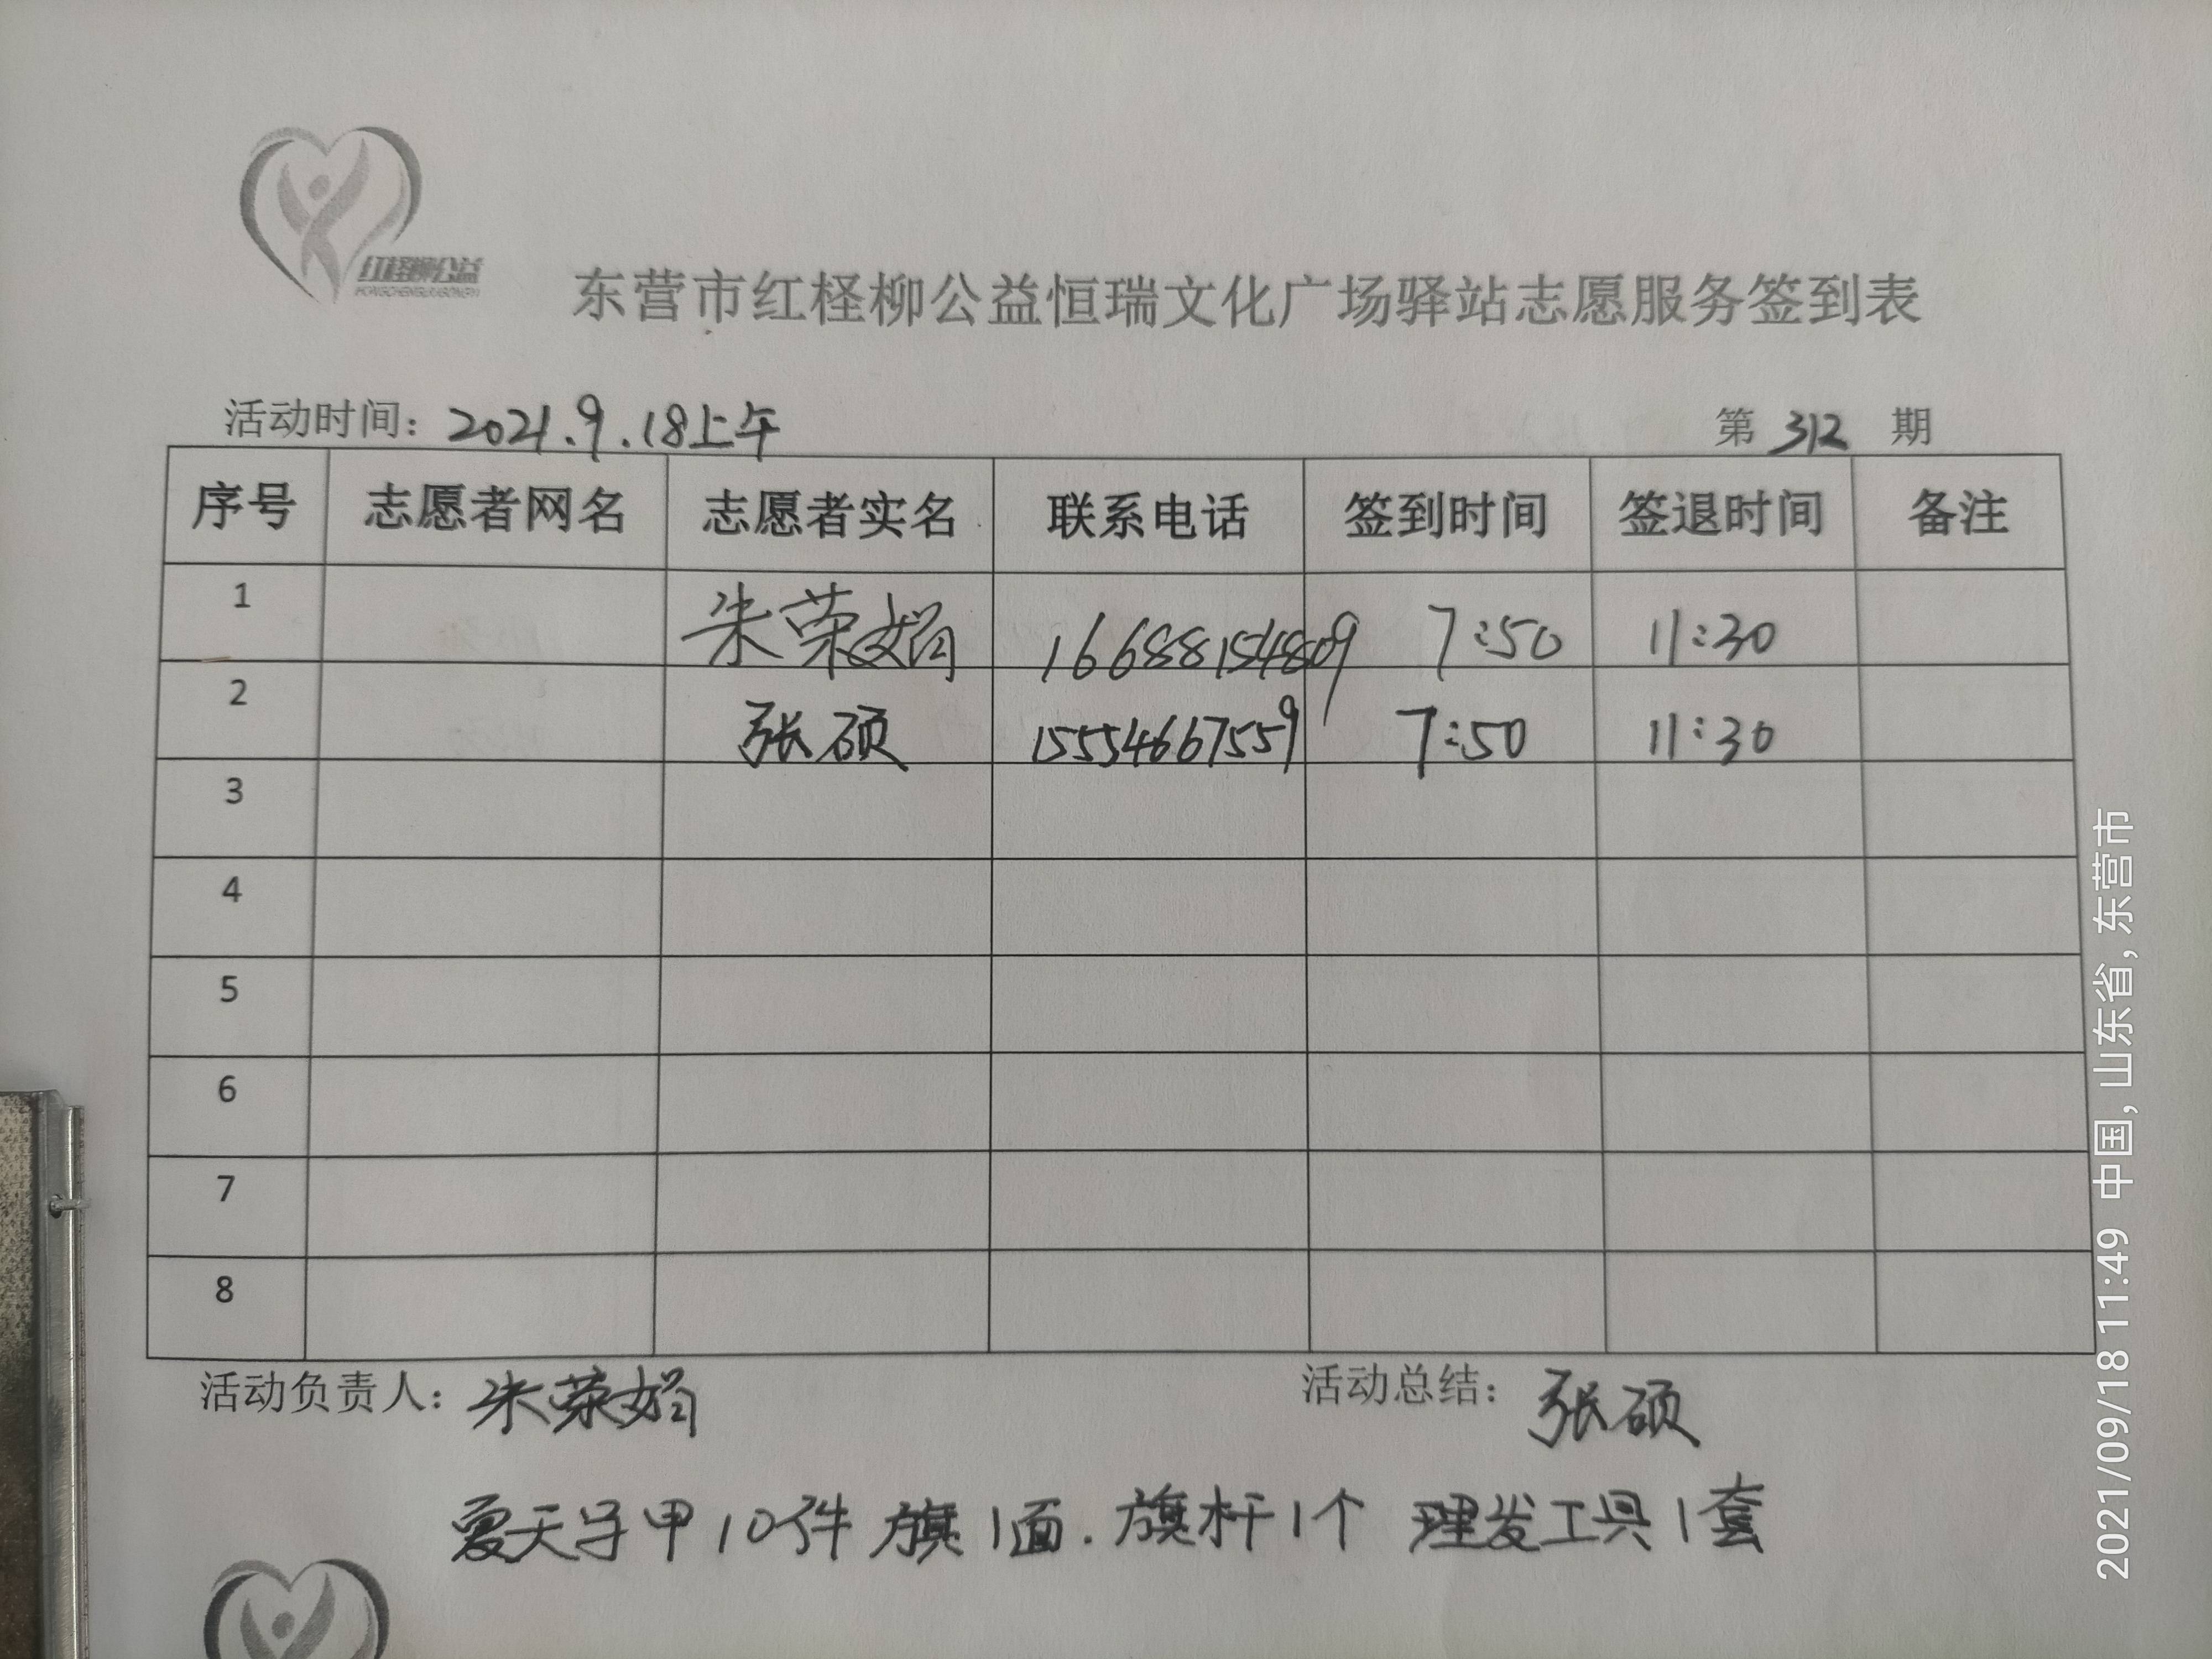 红柽柳公益
HONGCHENGLIUGONGYI
东营市红柽柳公益恒瑞文化广场驿站志愿服务签到表
活动时间：2021.9.18上午 第 312 期
序号 志愿者网名 志愿者实名 联系电话 签到时间 签退时间 备注
1 朱荣娟 16688154809 7:50 11:30
2 张硕 15554667559 7:50 11:30
3
4
5
6
7
8
活动负责人：朱荣娟 活动总结：张硕
夏天马甲10件 旗1面. 旗杆1个 理发工具1套
2021/09/18 11:49 中国, 山东省, 东营市